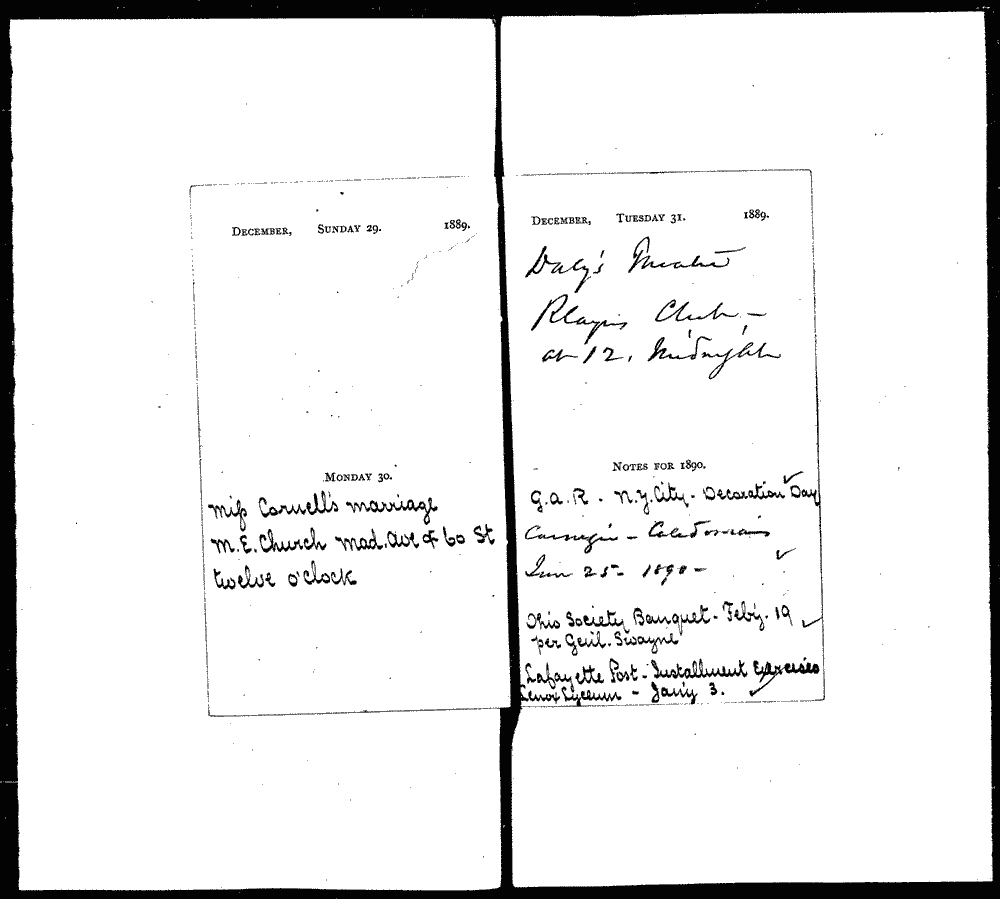 DECEMBER, SUNDAY 29. 1889.
MONDAY 30.
Miss Cornell's marriage
M.E. Church Mad. Ave & 60 St
twelve o'clock
DECEMBER, TUESDAY 31. 1889.
Daly's Theatre
Players Club –
at 12, Midnight
NOTES FOR 1890.
G.A.R. - N.Y. City - Decoration Day
Carnegie – Caledonians
Jan 25 – 1890 –
Ohio Society Banquet - Feb'y. 19
per Genl. Swayne
Lafayette Post - Installment Exercises
Lenox Lyceum - Jan'y 3.